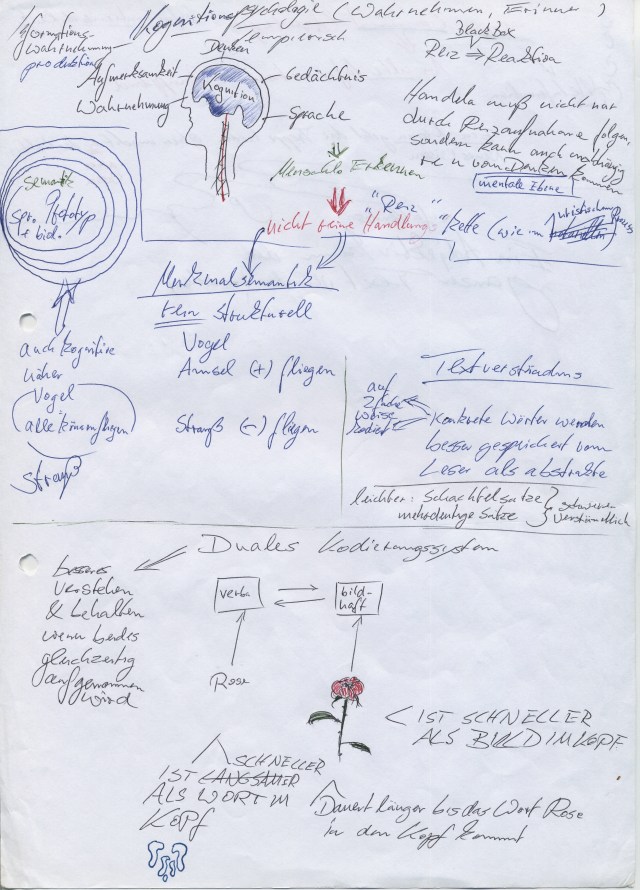 Informations-
wahrnehmung
produktion
Kognitionspsychologie (Wahrnehmen, Erinne )
empirisch
Denken
Aufmerksamkeit
Wahrnehmung
Kognition
Gedächtnis
Sprache
BlackBox
Reiz ⇒ Reaktion
Handeln muß nicht nur
durch Reizaufnahme folgen,
sondern kann auch
vom Denken kommen
mentale Ebene
Mentales Erkennen
nicht reine "Reiz Handlungs" kette (wie im
Semantik
Prototyp
Spr.
+ bid.
auch kognitive
näher
Vogel
alle können fliegen
Strauß
Merkmalsemantik
rein strukturell
Vogel
Amsel (+) fliegen
Strauß (-) fliegen
Textverständnis
auf
2fache
weise
kodiert
Konkrete Wörter werden
besser gespeichert vom
Leser als abstrakte
leichter: Schachtelsätze
mehrdeutige Sätze
schwerer
verständlich
Duales Kodierungssystem
besseres
verstehen
& behalten
wenn beides
gleichzeitig
aufgenommen
wird
verba
bild-
haft
Rose
< IST SCHNELLER
ALS BILD IM KOPF
SCHNELLER
IST LANGSAMER
ALS WORT IM
KOPF
Dauert länger bis das Wort Rose
in den Kopf kommt